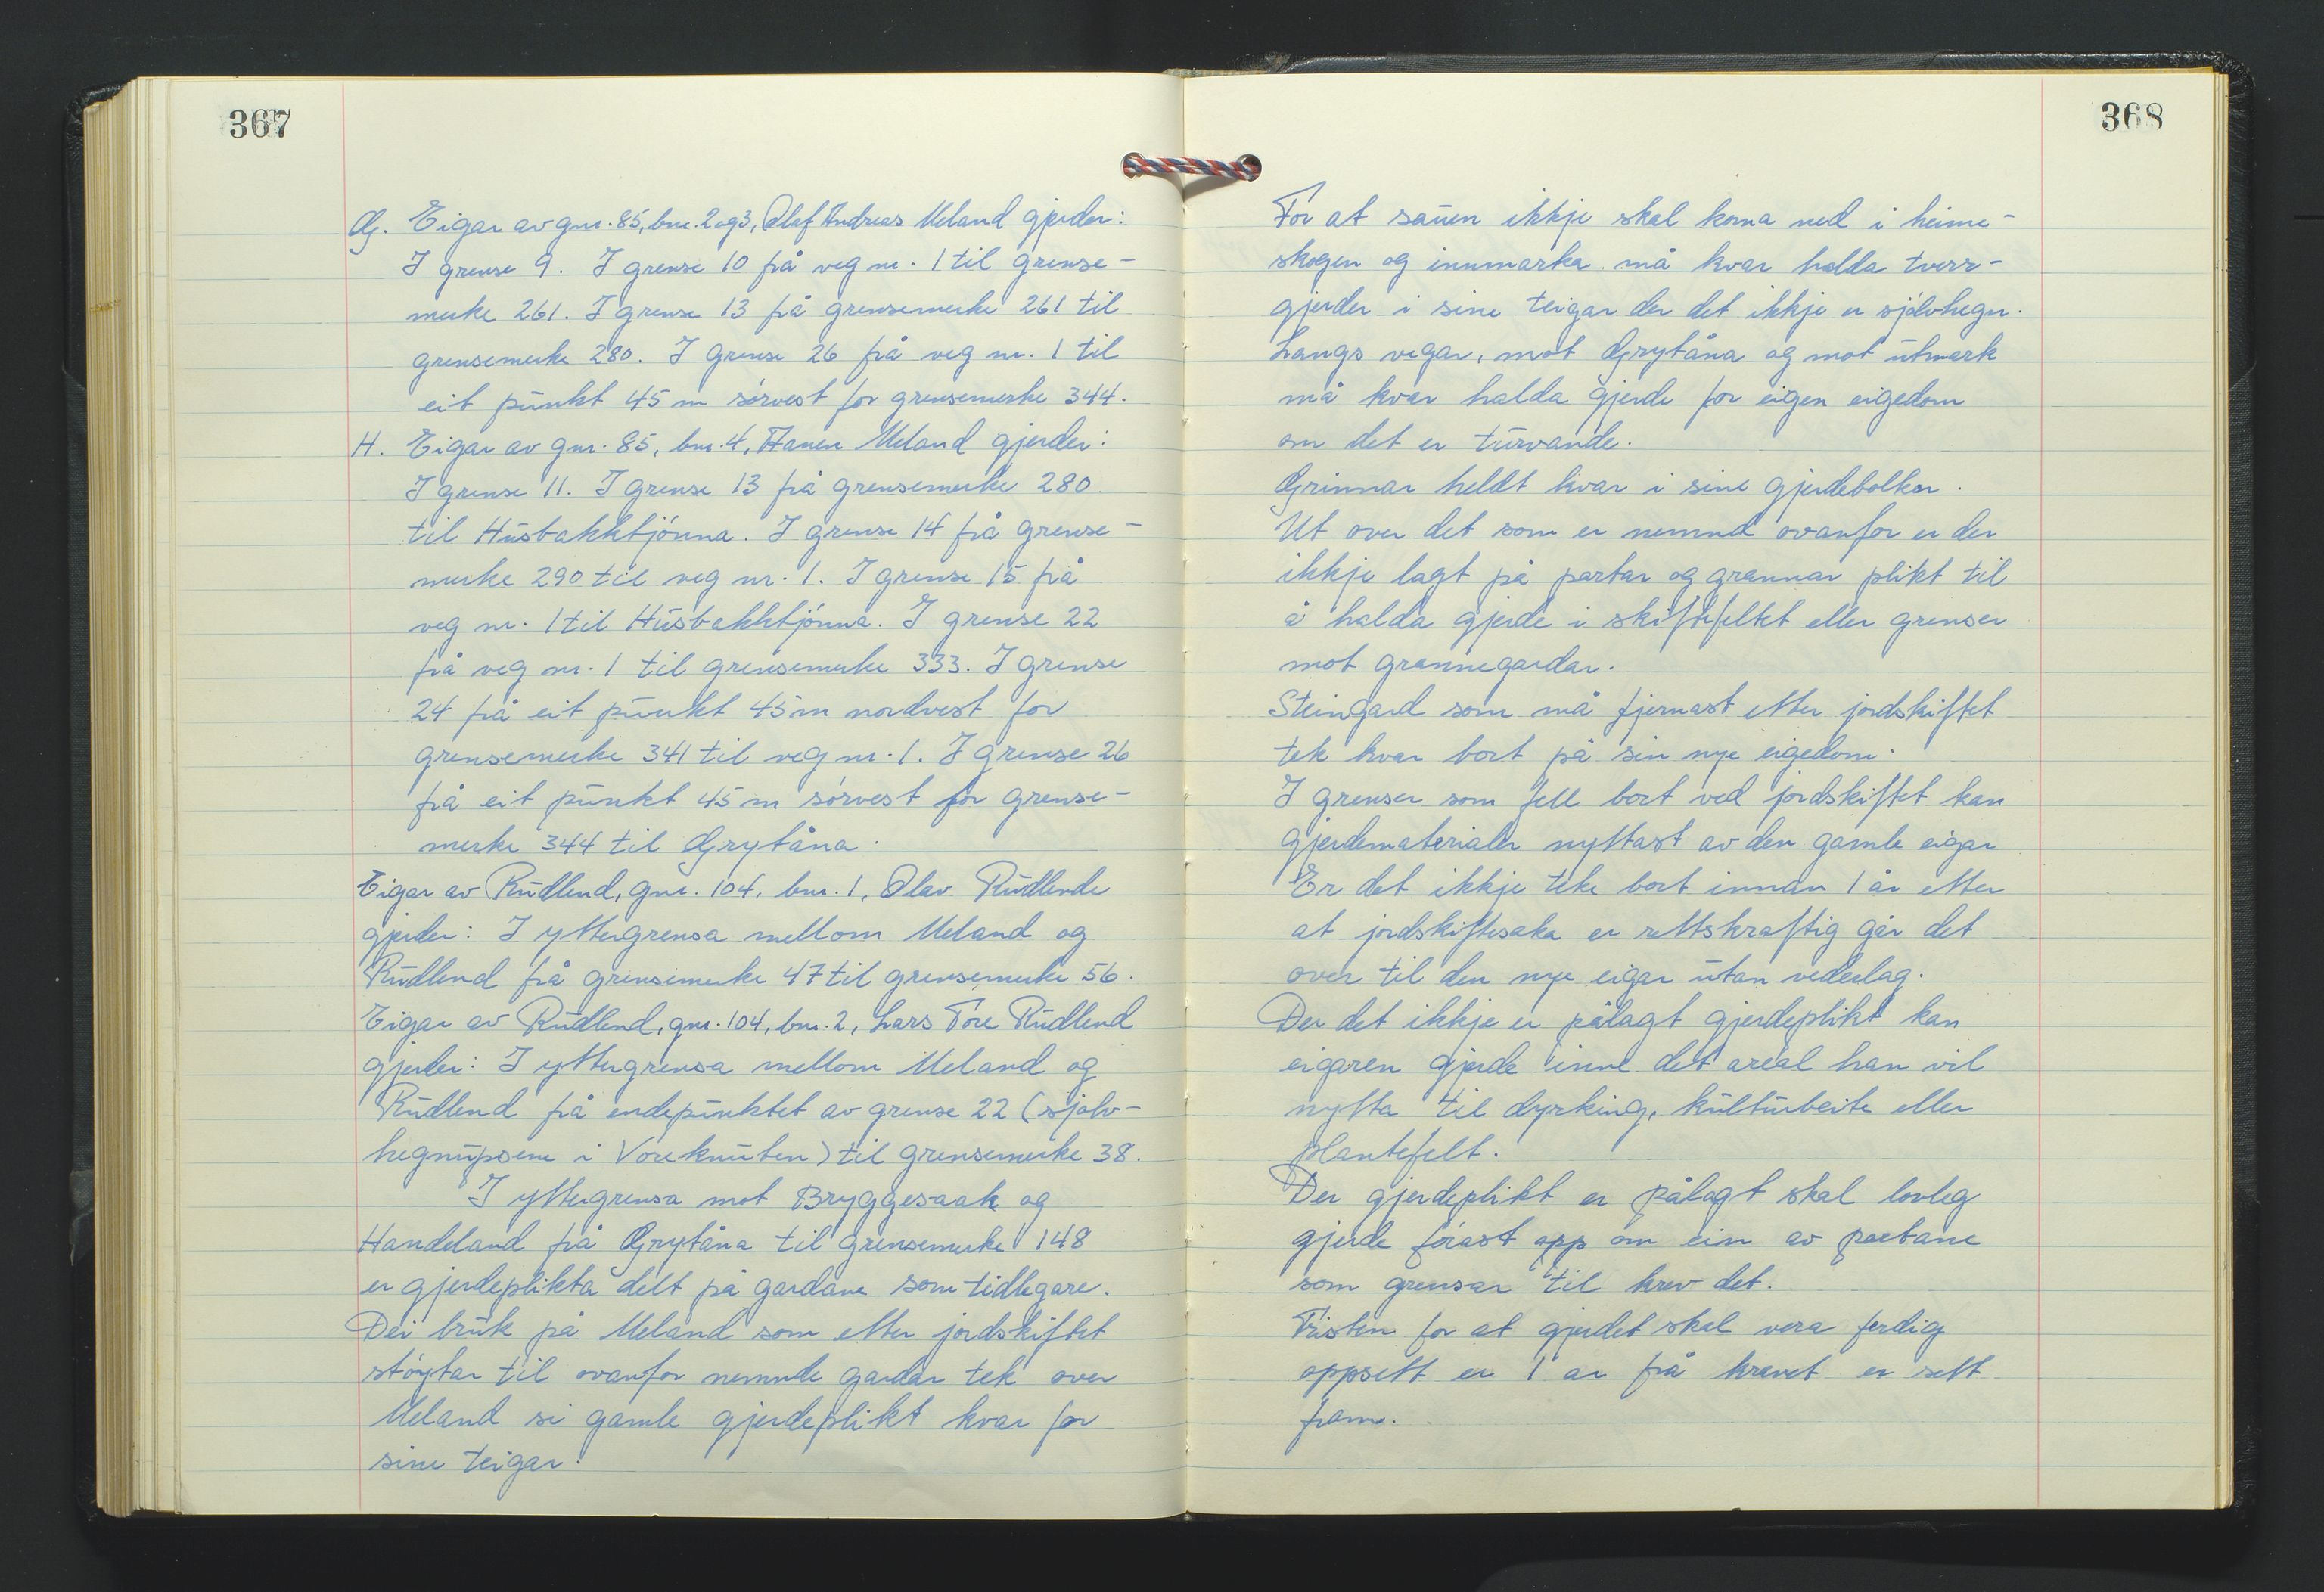 367
G. Eigar av gnr. 85, bnr. 2 og 3, Olaf Andreas Meland gjerder:
I grense 9. I grense 10 frå veg nr. 1 til grense-
merke 261. I grense 13 frå grensemerke 261 til
grensemerke 280. I grense 26 frå veg nr. 1 til
eit punkt 45 m sørvest for grensemerke 344.
H. Eigar av gnr. 85, bnr. 4, Hanen Meland gjerder:
I grense 11. I grense 13 frå grensemerke 280
til Husbakktjønna. I grense 14 frå grense-
merke 290 til veg nr. 1. I grense 15 frå
veg nr. 1 til Husbakktjønna. I grense 22
frå veg nr. 1 til grensemerke 333. I grense
24 frå eit punkt 45 m nordvest for
grensemerke 341 til veg nr. 1. I grense 26
frå eit punkt 45 m sørvest for grense-
merke 344 til Grytåna.
Eigar av Rudlend, gnr. 104, bnr. 1, Olav Rudlende
gjerder: I yttergrensa mellom Meland og
Rudlend frå grensemerke 47 til grensemerke 56.
Eigar av Rudlend, gnr. 104, bnr. 2, Lars Tore Rudlend
gjerder: I yttergrensa mellom Meland og
Rudlend frå endepunktet av grense 22 (sjølv-
hegnupsene i Voreknuten) til grensemerke 38.
I yttergrensa mot Bryggesaak og
Handeland frå Grytåna til grensemerke 148
er gjerdeplikta delt på gardane som tidlegare.
Dei bruk på Meland som etter jordskiftet
støytar til ovanfor nemnde gardar tek over
Meland si gamle gjerdeplikt kvar for
sine teigar.
368
For at sauen ikkje skal koma ned i heime-
skogen og innmarka må kvar halda tverr-
gjerder i sine teigar der det ikkje er sjølvhegn.
Langs vegar, mot Grytåna og mot utmark
må kvar halda gjerde for eigen eigedom
om det er turvande.
Grinnar heldt kvar i sine gjerdebolkar.
Ut over det som er nemnd ovanfor er der
ikkje lagt på partar og grannar plikt til
å halda gjerde i skiftefeltet eller grenser
mot grannegardar.
Steingard som må fjernast etter jordskiftet
tek kvar bort på sin nye eigedom.
I grenser som fell bort ved jordskiftet kan
gjerdematerialer nyttast av den gamle eigar
Er det ikkje teke bort innan 1 år etter
at jordskiftesaka er rettskraftig går det
over til den nye eigar utan vederlag.
Der det ikkje er pålagt gjerdeplikt kan
eigaren gjerde inne det areal han vil
nytta til dyrking, kulturbeite eller
plantefelt.
Der gjerdeplikt er pålagt skal lovleg
gjerde førast opp om ein av partane
som grensar til krev det.
Fristen for at gjerdet skal vera ferdig
oppsett er 1 år frå kravet er sett
fram.